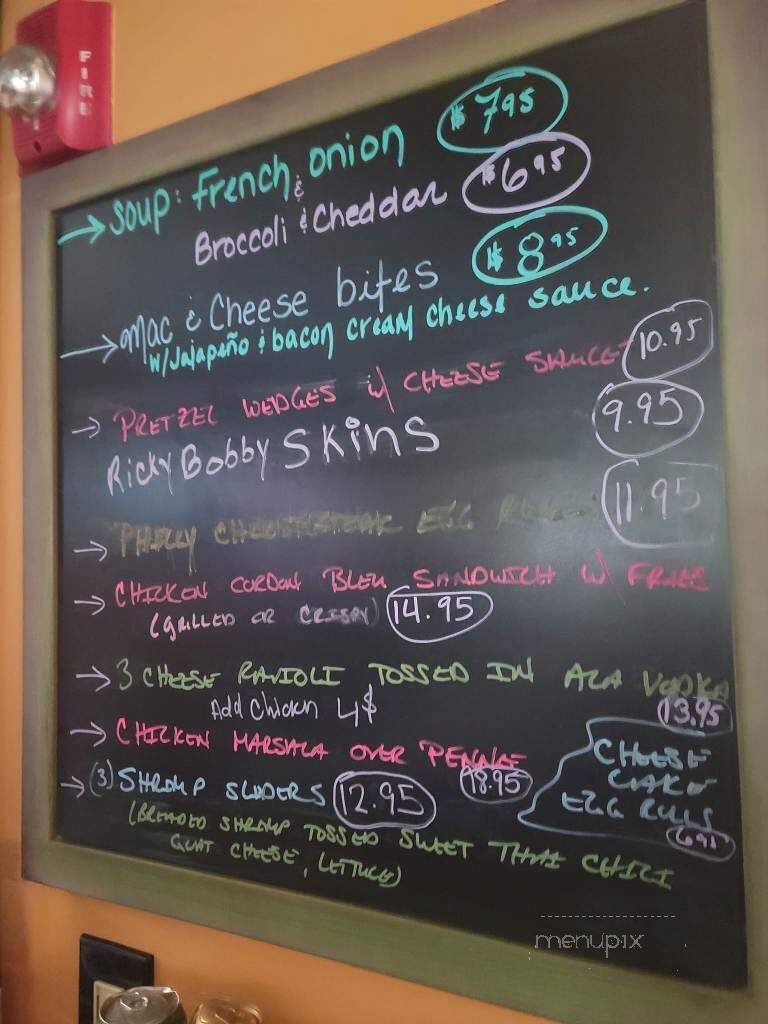 FIRE
→ Soup: French onion $7.95
& Broccoli & Cheddar $6.95
→ Mac & Cheese bites $8.95
w/Jalapeño & bacon cream cheese sauce.
→ PRETZEL WEDGES w/ CHEESE SAUCE 10.95
Ricky Bobby Skins 9.95
→ PHILLY CHEESESTEAK EGG 11.95
→ CHICKEN CORDON BLEU SANDWICH W/ FRIES
(GRILLED OR CRISPY) 14.95
→ 3 CHEESE RAVIOLI TOSSED IN ALA VODKA
Add Chicken 4$ 13.95
→ CHICKEN MARSALA OVER PENNE
18.95
→ (3) SHRIMP SLIDERS 12.95
(BREADED SHRIMP TOSSED SWEET THAI CHILI
GOAT CHEESE, LETTUCE)
CHEESE
CAKE
EGG ROLLS
menupix